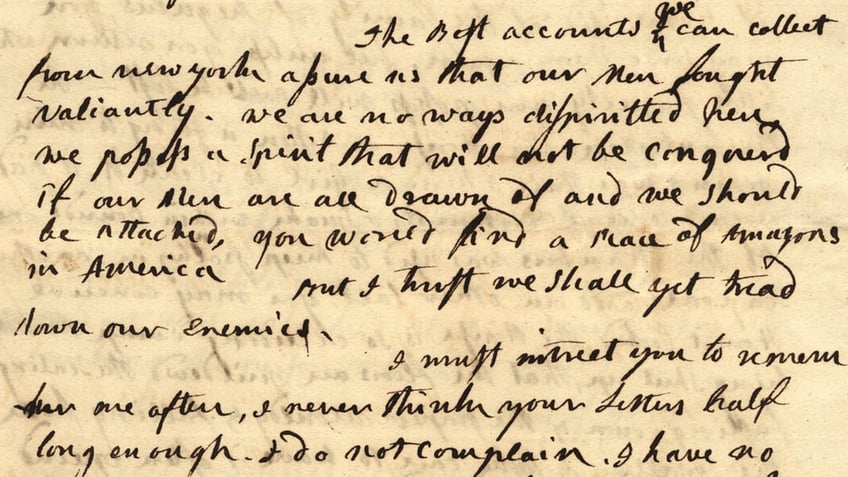 The Best accounts we can collect
from new york assure us that our Men fought
valiantly. we are no ways dispiritted here,
we possess a Spirit that will not be conquerd
If our Men are all drawn of and we should
be attacked, you would find a Race of Amazons
in America
But I trust we shall yet tread
down our Enemies.
I must intreat you to remem
ber me often, I never think your Letters half
long enough. I do not complain. I have no